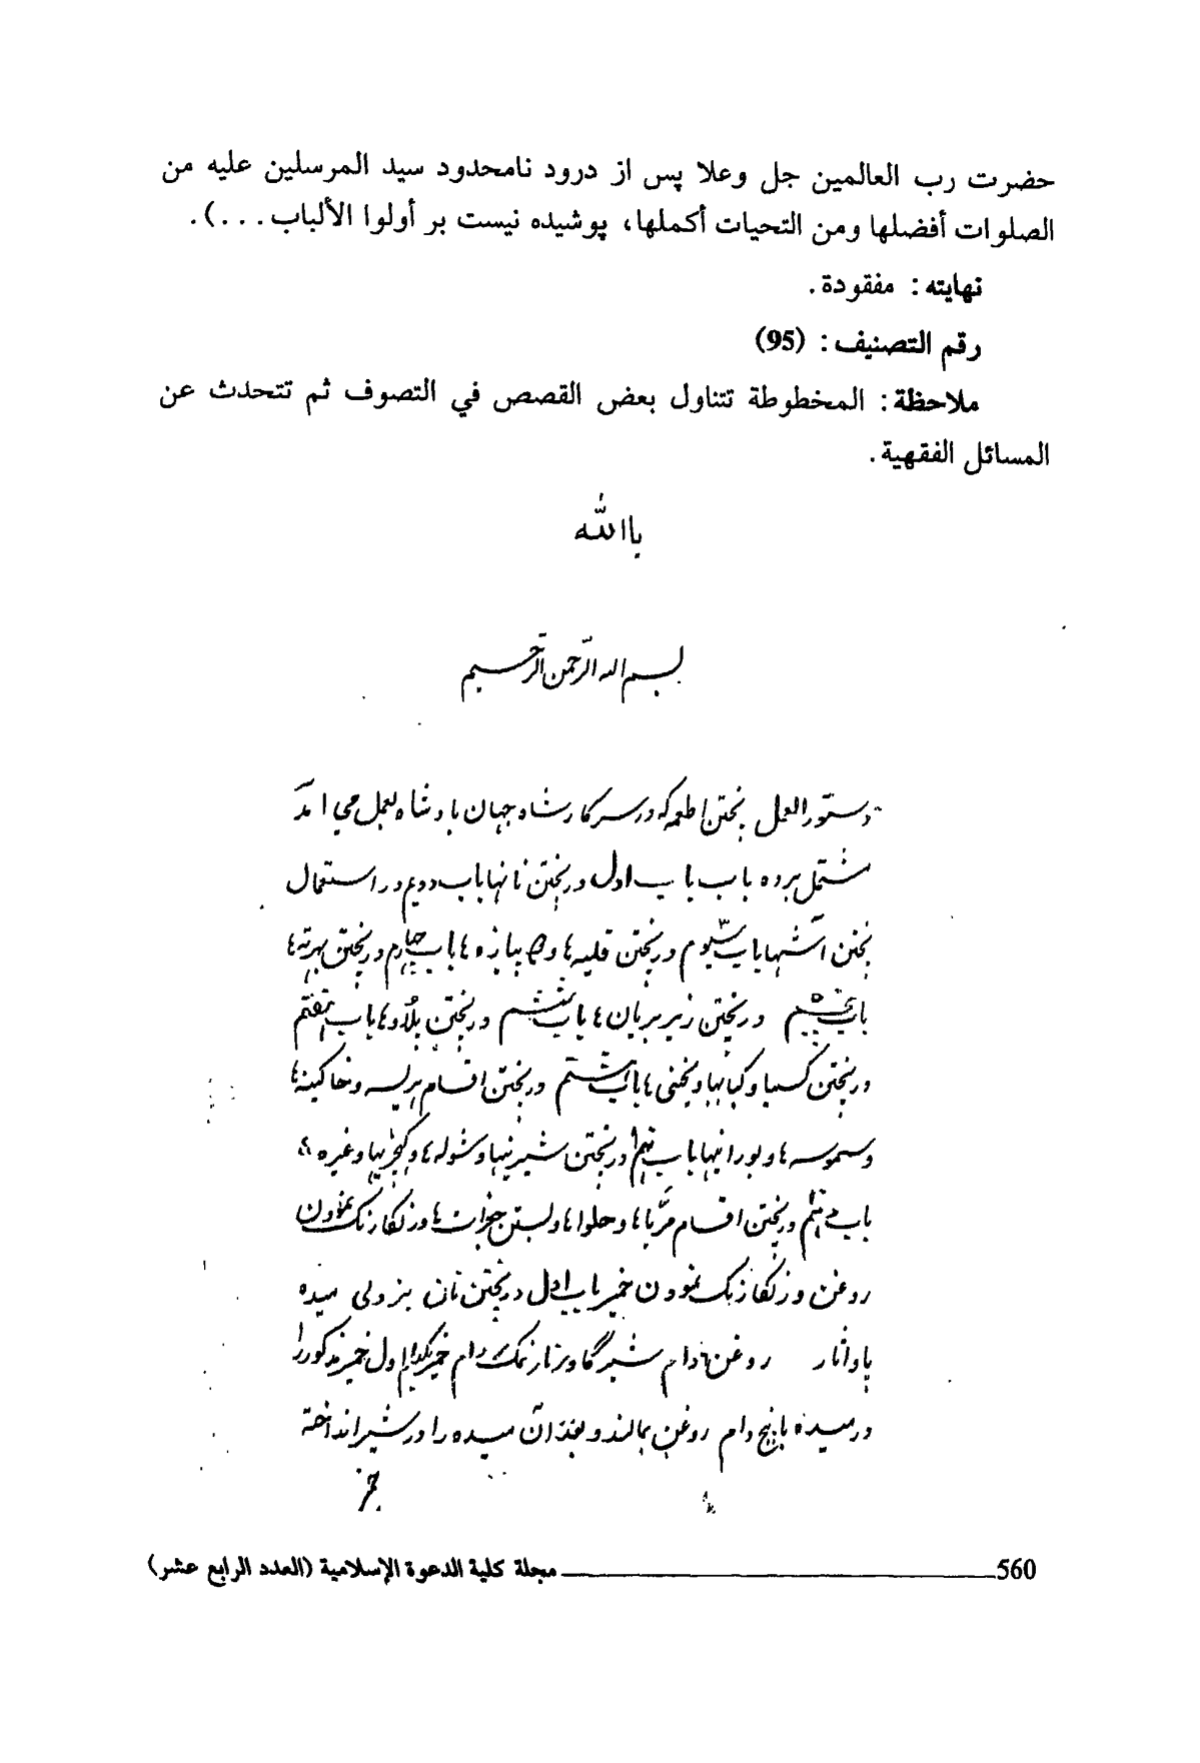 حضرت رب العالمين جل وعلا پس از درود نامحدود سيد المرسلين عليه من
الصلوات أفضلها ومن التحيات أكملها، پوشيده نيست بر أولوا الألباب...).
نهايته: مفقودة.
رقم التصنيف: (95)
ملاحظة: المخطوطة تتناول بعض القصص في التصوف ثم تتحدث عن
المسائل الفقهية.
ياالله
بسم الله الرّحمن الرّحيم
دستور العمل پختن اطعمه که در سرکار شاه جهان بادشاه بعمل می آمد
مشتمل برده باب باب اول در پختن نانها باب دویم در استعمال
پختن آشها باب سیوم در پختن قلیه ها و دو پیازه ها باب چهارم در پختن بهرته ها
باب پنجم در پختن زیر بریان ها باب ششم در پختن پلاوها باب هفتم
در پختن و کبابها و یخنی ها باب هشتم در پختن اقسام هریسه و خاکینه ها
و سموسه ها و پورانیها باب نهم در پختن شیرینیها و شوله ها و کهچریها وغیره
باب دهم در پختن اقسام مربّاها و حلواها و بستن جغرات ها و رنگارنگ نمودن
روغن و رنگارنگ نمودن خمیر باب اول در پختن نان تنکی میده
پاو آثار روغن دام شیر گاو نمک دام خمیر اول خمیر مذکور را
در میده با پنج دام روغن بمالند و بعد آن میده را در شیر انداخته
خمیر
560 مجلة كلية الدعوة الإسلامية (العدد الرابع عشر)